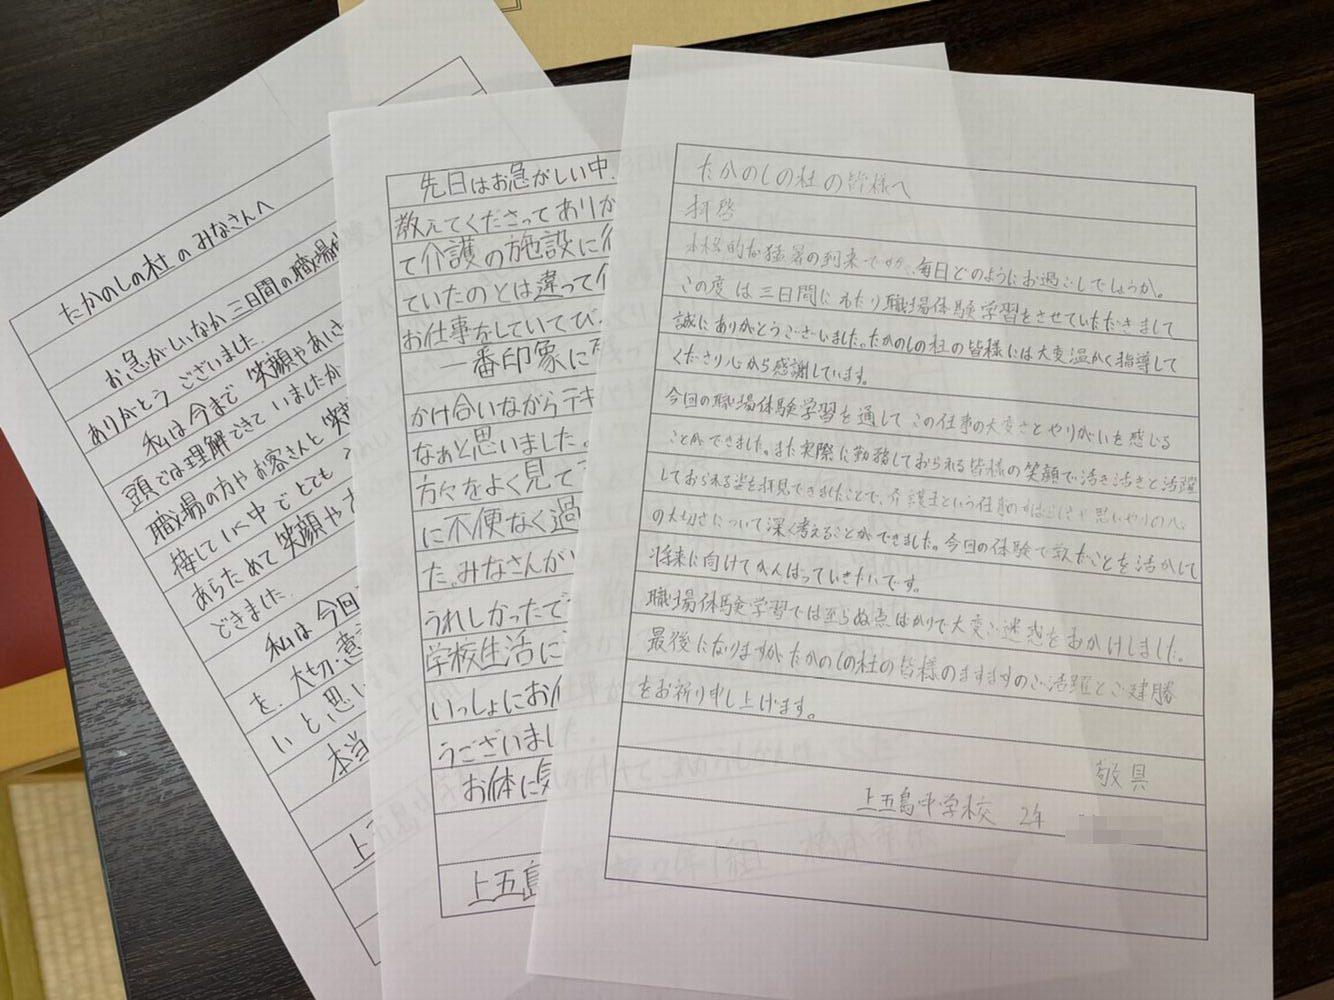 たかのしの杜のみなさんへ
お急がしいなか三日間の職場
ありがとうございました。
私は今まで笑顔やあいさ
頭では理解できていましたが
職場の方やお客さんと笑
接していく中でとても
あらためて笑顔や
できました。
私は今回
を、大切・意
いと思い
本当
上
先日はお急がしい中、
教えてくださってありが
て介護の施設に
ていたのとは違って
お仕事をしていてび
一番印象に
かけ合いながらテキ
なぁと思いました。
方々をよく見て
に不便なく過
た。みなさんがい
うれしかったで
学校生活に
いっしょにお
うございまし
お体に気
上五島
たかのしの杜の皆様へ
拝啓
本格的な猛暑の到来ですが、毎日どのようにお過ごしでしょうか。
この度は三日間にわたり職場体験学習をさせていただきまして
誠にありがとうございました。たかのしの杜の皆様には大変温かく指導して
くださり心から感謝しています。
今回の職場体験学習を通してこの仕事の大変さとやりがいを感じる
ことができました。また実際に勤務しておられる皆様の笑顔で活き活きと活躍
しておられる姿を拝見できましたことで、介護士という仕事のすばらしさや思いやりの心
の大切さについて深く考えることができました。今回の体験で学んだことを活かして
将来に向けてがんばっていきたいです。
職場体験学習では至らぬ点ばかりで大変ご迷惑をおかけしました。
最後になりますがたかのしの杜の皆様のますますのご活躍とご健勝
をお祈り申し上げます。
敬具
上五島中学校 2年